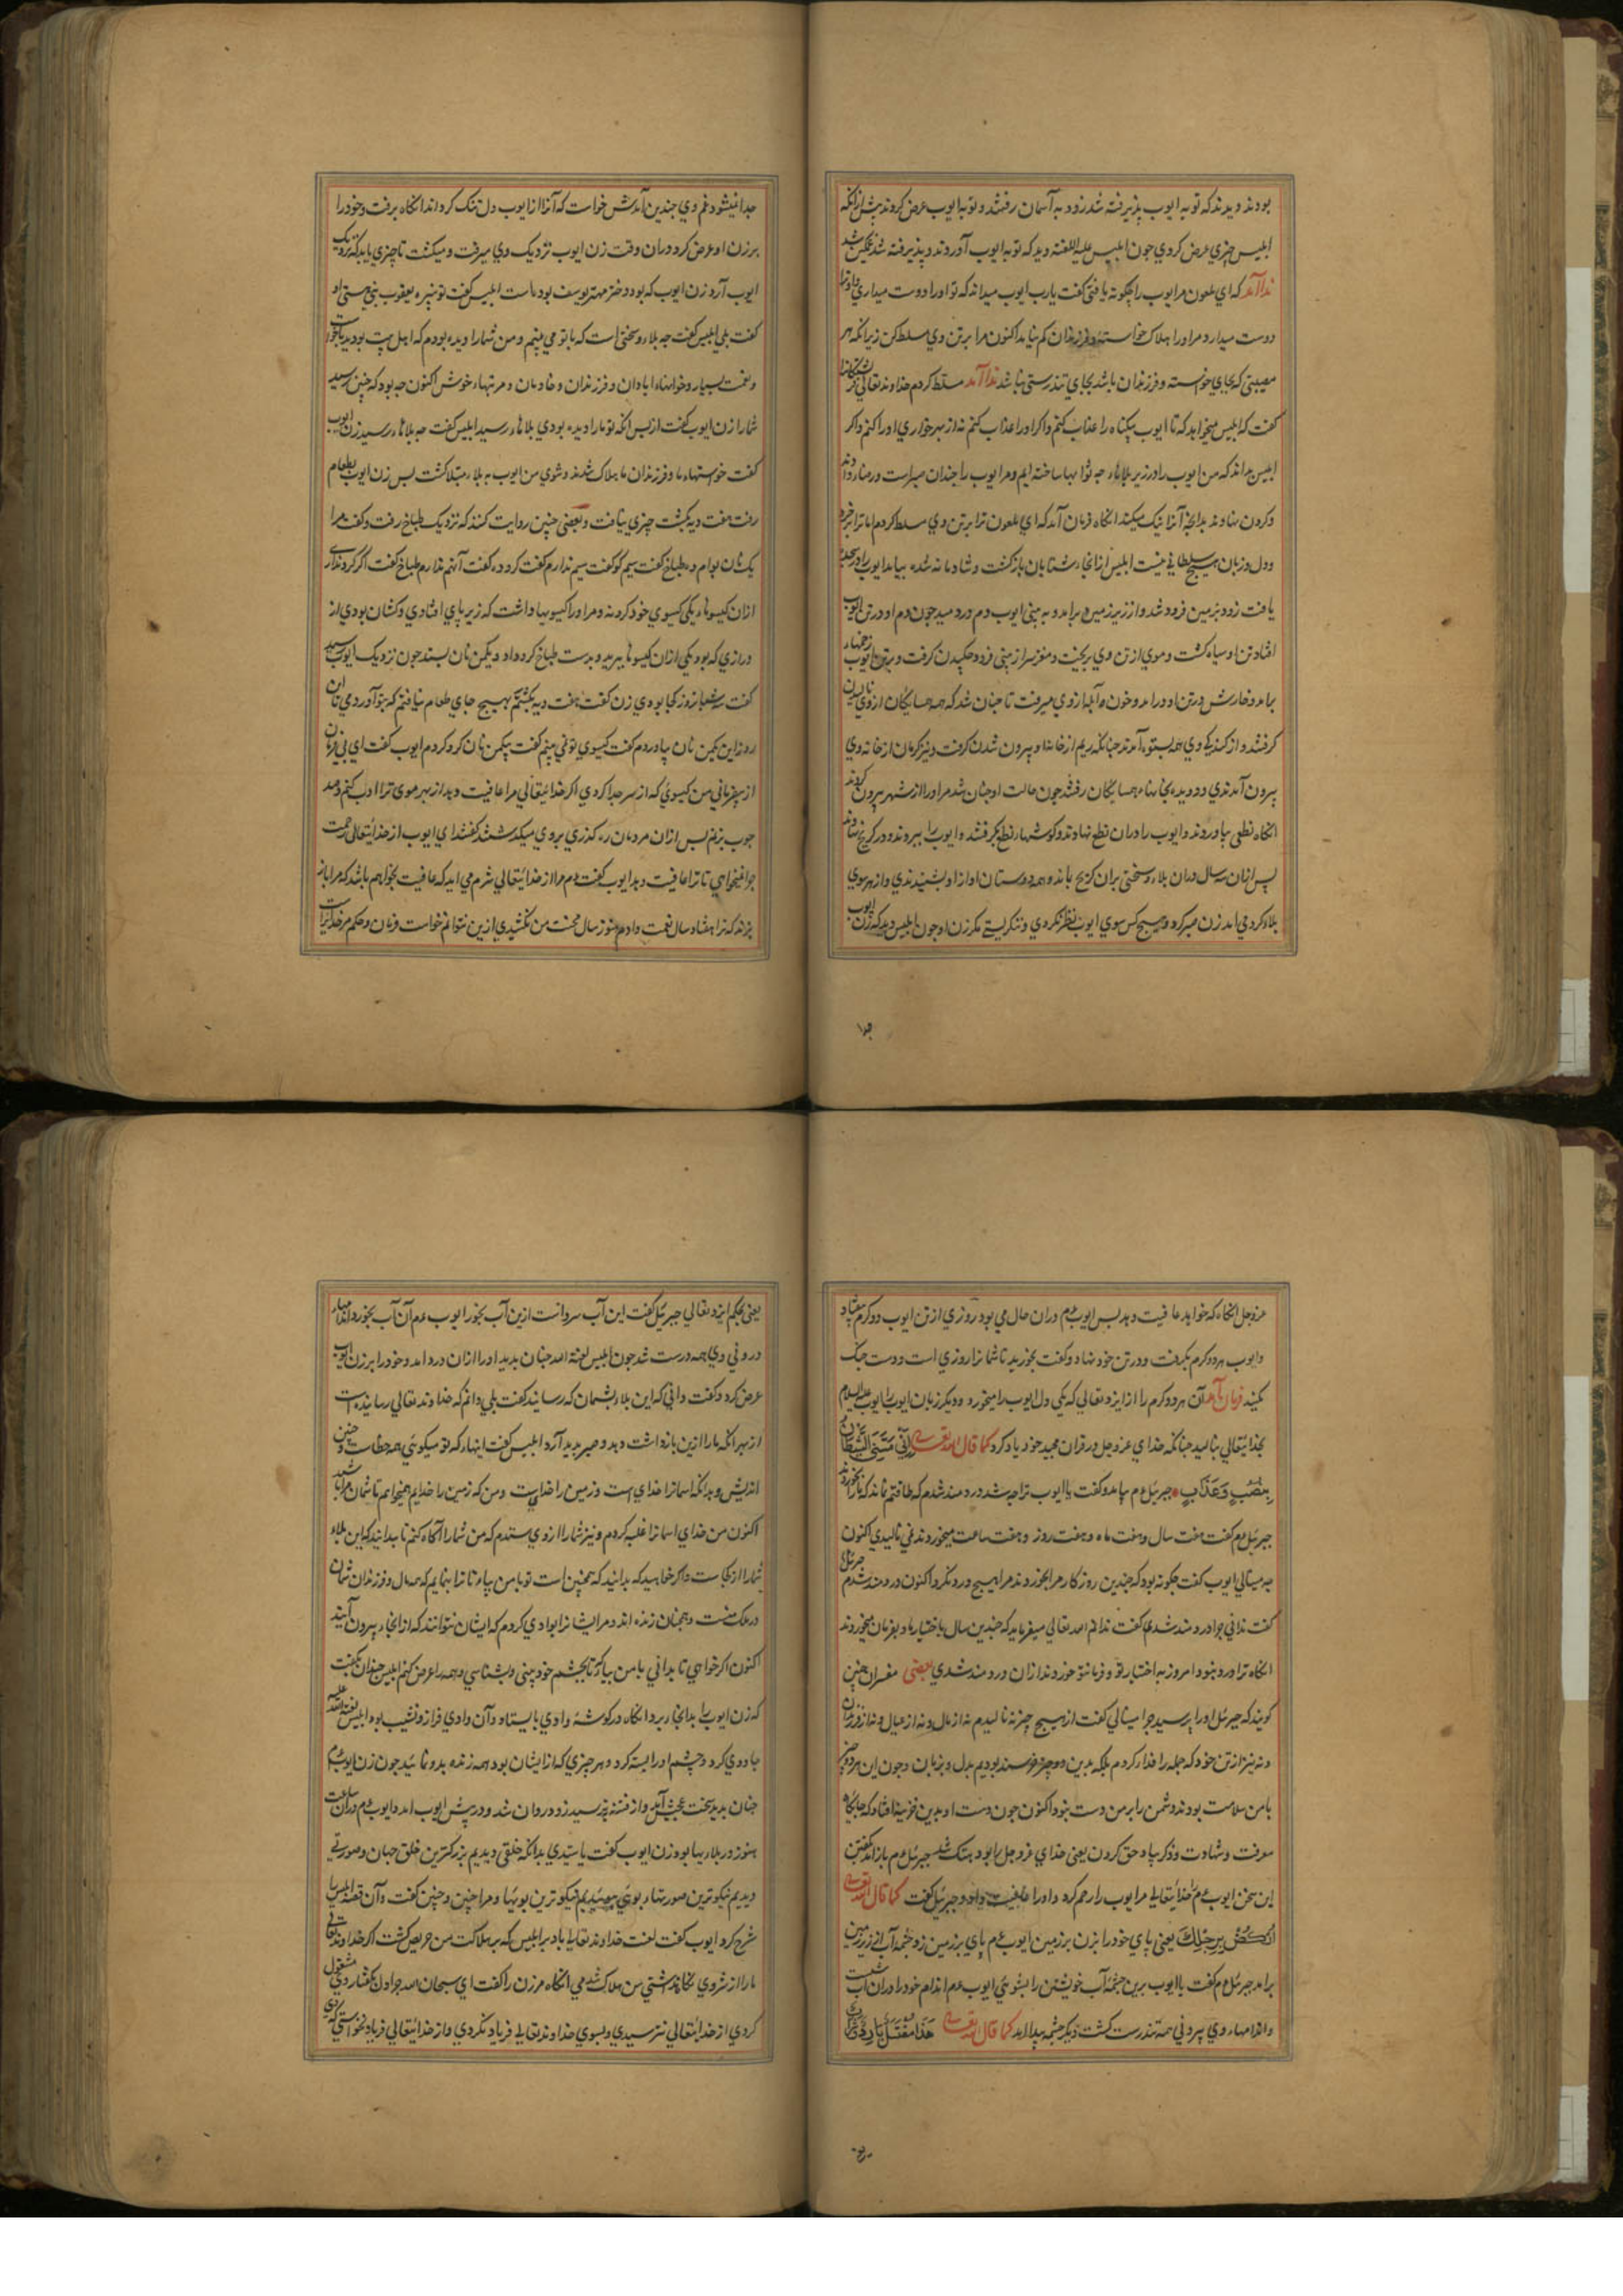 بودند و دیدند که توبه ایوب پذیرفته شد زود به آسمان رفتند و توبه ایوب عرض کردند پیش ازانکه
ابلیس چیزی عرض کردی چون ابلیس علیه اللعنه دید که توبه ایوب آوردند و پذیرفته شد غمکین شد
ندا آمد که ای ملعون مر ایوب را چکونه یافتی کفت یارب ایوب میداند که تو او را دوست میداری
دوست میدارد مر او را هلاک خواسته و فرزندان کم نیاید اکنون مرا برتن وی مسلط کن زیرا که هر
مصیبتی که بجای خواسته و فرزندان باشد بجای تندرستی نباشد ندا آمد مسلط کردم خداوند تعالی
کفت که ابلیس میخواهد که تا ایوب بیکناه را عذاب کنم و اکر او را عذاب کنم نه از بهر خواری او را کنم و اکر
ابلیس بداند که من ایوب را در زیر بلاها چه ثوابها ساخته ایم و مر ایوب را چندان صبر است
و کردن بنهاوند بدانچه آنرا نیک میکند انکاه فرمان آمد که ای ملعون ترا برتن وی مسلط کردم اما ترا بر خرد
و دل و زبان هیچ سلطانی نیست ابلیس از انجا شتابان بازکشت و شادمانه شده بیامد ایوب را در سجده
یافت زود بزمین فرود شد و از زیر زمین برامد و به بینی ایوب دم در دمید چون دم او در تن ایوب
افتاد تن او سیاه کشت و موی از تن وی بریخت و مغز سر از بینی فرود چکیدن کرفت و برتن ایوب زخمها
برامد و خارش در تن او در امد و خون و آبله از وی میرفت تا چنان شد که همه همسایکان از وی نالیدن
کرفتند و از کند کی وی همه بستوه آمدند چنانکه ریم از خانها و بیرون شدن کرفت و نیز کرمان از خانه وی
بیرون آمدندی و دویده بخانهاء همسایکان رفتند چون حالت او چنان شد مر او را از شهر بیرون کردند
انکاه نطعی بیاوردند و ایوب را دران نطع نهادند و کوشهاء نطع بکرفتند و ایوب را ببردند و در کریخ نهادند
پس ازان سه سال دران بلا و سختی بران کریخ بماند و همه دوستان اواز او بشنیدندی و از هر سوی
بلاء کرد می امد زن صبر کرد و هیچ کس سوی ایوب نظر نکردی و ننکریستی مکر زن او چون ابلیس دید که زن ایوب
جدا نمیشود غم وی چندین آمدش خواست که آنرا از ایوب دل تنک کرداند انکاه برفت و خود را
بر زن او عرض کرد دران وقت زن ایوب نزدیک وی میرفت و میکشت تا چیزی یابد که نزدیک
ایوب آرد زن ایوب که بود دختر مهتر یوسف بوده است ابلیس کفت تو نبیره یعقوب نبی هستی او
کفت بلی ابلیس کفت چه بلاء و سختی است که با تو می بینم و من شما را دیده بودم که اهل بیت بودید
و نعمت بسیار و خوانهاء ابادان و فرزندان و خادمان و مرتبهاء خوش اکنون چه بود که چنین رسید
شما را زن ایوب کفت از پس انکه تو ما را دیده بودی بلاهاء رسید ابلیس کفت چه بلاهاء رسید زن ایوب
کفت خواستهاء ما و فرزندان ما هلاک شدند و شوی من ایوب به بلاء مبتلا کشت پس زن ایوب بطعام
رفت هفت دیه بکشت چیزی نیافت و بعضی چنین روایت کنند که نزدیک طباخ رفت و کفت مرا
یک نان بوام ده طباخ کفت سیم کو کفت سیم ندارم کفت کرو ده کفت آنهم ندارم طباخ کفت اکر کرو نداری
ازان کیسوهاء یکی کیسوی خود کرو نه و مر او را کیسوبها داشت که زیر پای افتادی و کشان بودی از
درازی که بود یکی ازان کیسوها ببرید و بدست طباخ کرو داد و یکمن نان بستد چون نزدیک ایوب رسید
کفت سه شبانروز کجا بودی زن کفت هفت دیه بکشتم بهیچ جای طعام نیافتم که بتو آوردمی تا این
روز این یکمن نان بیاوردم کفت کیسوی تو نمی بینم کفت بیکمن نان کرو کردم ایوب کفت ای بی فرمان
از بیفرمانی من کیسوی که از سر جدا کردی اکر خدایتعالی مرا عافیت دهد از بهر موی ترا ادب کنم و صد
چوب بزنم پس ازان مردمان ره کذری بروی میکذشتند کفتند ای ایوب از خدایتعالی رحمت
چرا نمیخواهی تا ترا عافیت دهد ایوب کفت دم مرا از خدایتعالی شرم می اید که عافیت بخواهم باشد که مرا باز
بزند که ترا هفتاد سال نعمت دادم هنوز سال محنت من نکشیدی ازین نتوانم خواست فرمان و حکم مر خدایراست
عزوجل انکاه که خواهد عافیت دهد پس ایوب عم دران حال می بود روزی از تن ایوب دو کرم بیفتاد
و ایوب هر دو کرم بکرفت و در تن خود نهاد و کفت بخورید تا شما را روزی است و دست جنک
کنید فرمان آمد آن هر دو کرم را از ایزد تعالی که یکی دل ایوب را میخورد و دیکر زبان ایوب را ایوب علیه السلام
بخدایتعالی بنالید چنانکه خدای عزوجل در قران مجید خود یاد کرد کما قال الله تعالی اَنِّی مَسَّنِیَ الشَّیْطَانُ
بِنُصْبٍ وَعَذَابٍ جبرئیل عم بیامد و کفت یا ایوب ترا چه شد دردمند شدم که طاقتم نماند که باز بخوردند
جبرئیل عم کفت هفت سال و هفت ماه و هفت روز و هفت ساعت میخوردند نمی نالیدی اکنون
چه مینالی ایوب کفت چکونه بود که چندین روزکار مرا بخوردند مرا هیچ درد نکرد و اکنون دردمند شدم جبرئیل
کفت ندانی چرا دردمند شدی کفت ندانم الله تعالی میفرماید که چندین سال باختیار ما و بفرمان میخوردند
انکاه ترا درد نبود امروز به اختیار تو و فرمان تو خوردند ازان دردمند شدی بعضی مفسران چنین
کویند که جبرئیل او را پرسید چرا مینالی کفت از هیچ چیز نه نالیدم نه از مال و نه از عیال و نه از فرزندان
و نه نیز از تن خود که جمله را فدا کردم بلکه بدین دو چیز خرسند بودیم بدل و بزبان و چون این هر دو چیز
با من سلامت بودند دشمن را بر من دست نبود اکنون چون دست او بدین خزینه افتاد که جایکاه
معرفت و شهادت و ذکر یاد حق کردن یعنی خدای عزوجل را بود جبرئیل عم باز امد کفتن
این سخن ایوب عم خدایتعالی مر ایوب را رحم کرد و او را عافیت داد و جبرئیل کفت کما قال الله تعالی
اُرْکُضْ بِرِجْلِکَ یعنی پای خود را بزن بر زمین ایوب عم پای بر زمین زد چشمه آب از زیر زمین
برامد جبرئیل عم کفت یا ایوب برین چشمه آب خویشتن را بشوی ایوب عم اندام خود را دران آب شست
و اندامهاء وی بیرونی همه تندرست کشت دیکر چشمه پیدا امد کما قال الله تعالی هَذَا مُغْتَسَلٌ بَارِدٌ
یعنی بحکم ایزد تعالی جبرئیل کفت این آب سرد است ازین آب بخور ایوب عم آن آب بخورد اندامهاء
درونی وی همه درست شد چون ابلیس لعنة الله چنان بدید او را ازان درد امد و خود را بر زن ایوب
عرض کرد و کفت دانی که این بلاء بشمان که رسانید کفت بلی دانم که خداوند تعالی رسانیده است
از بهر انکه ما را ازین باز داشت دهد و صبر پدید آرد ابلیس کفت اینهاء که تو میکوئی همه خطاست و چنین
اندیش و بدانکه اسمانرا خدای است و زمین را خدایست و من که زمین را خدایم همیخواهم تا شمان مرا باشید
اکنون من خدای اسمانرا غلبه کردم و نیز شما را از وی ستدم که من شما را آکاه کنم تا بدانید که این بلاء
شما را از کجاست و اکر خواهید که بدانید که همچنین است تو با من بیاء تا ترا بنمایم که همه مال و فرزندان شمان
در ملک منست و همچنان زنده اند و مر ایشانرا بوادی کردم که ایشان نتوانند که از انجاء بیرون آیند
اکنون اکر خواهی تا بدانی با من بیا که تا بچشم خود بینی و بشناسی و همه را عرض کنم ابلیس چندان بکفت
که زن ایوب را بدانجا ببرد و انکاه در کوشهٔ وادی بایستاد و آن وادی فراز و نشیب بود ابلیس لعنة الله علیه
جادوی کرد و چشم او را بسته کرد و هر چیزی که از ایشان بود همه زنده بدو نمائید چون زن ایوب عم
چنان بدید سخت عجبش آمد و از فتنه بترسید زود روان شد و در پیش ایوب امد و ایوب عم دران ساعت
هنوز در بلاء بیها بود زن ایوب کفت یا سیدی بدانکه خلقی دیدیم بزرکترین خلق جهان و صورتی
دیدیم نیکوترین صورتهاء بوئی بوئیدیم نیکوترین بوئیها و مرا چنین و چنین کفت و آن قصه ابلیس را
شرح کرد ایوب کفت لعنت خداوند تعالی باد بر ابلیس که بر هلاکت من حریص کشت اکر خداوند تعالی
ما را از شر وی نکاه نداشتی من هلاک شدمی انکاه مر زن را کفت ای سبحان الله چرا دل بکفتار وی مشغول
کردی از خدایتعالی نترسیدی و بسوی خداوند تعالی فریاد نکردی و از خدایتعالی فریاد نخواستی که